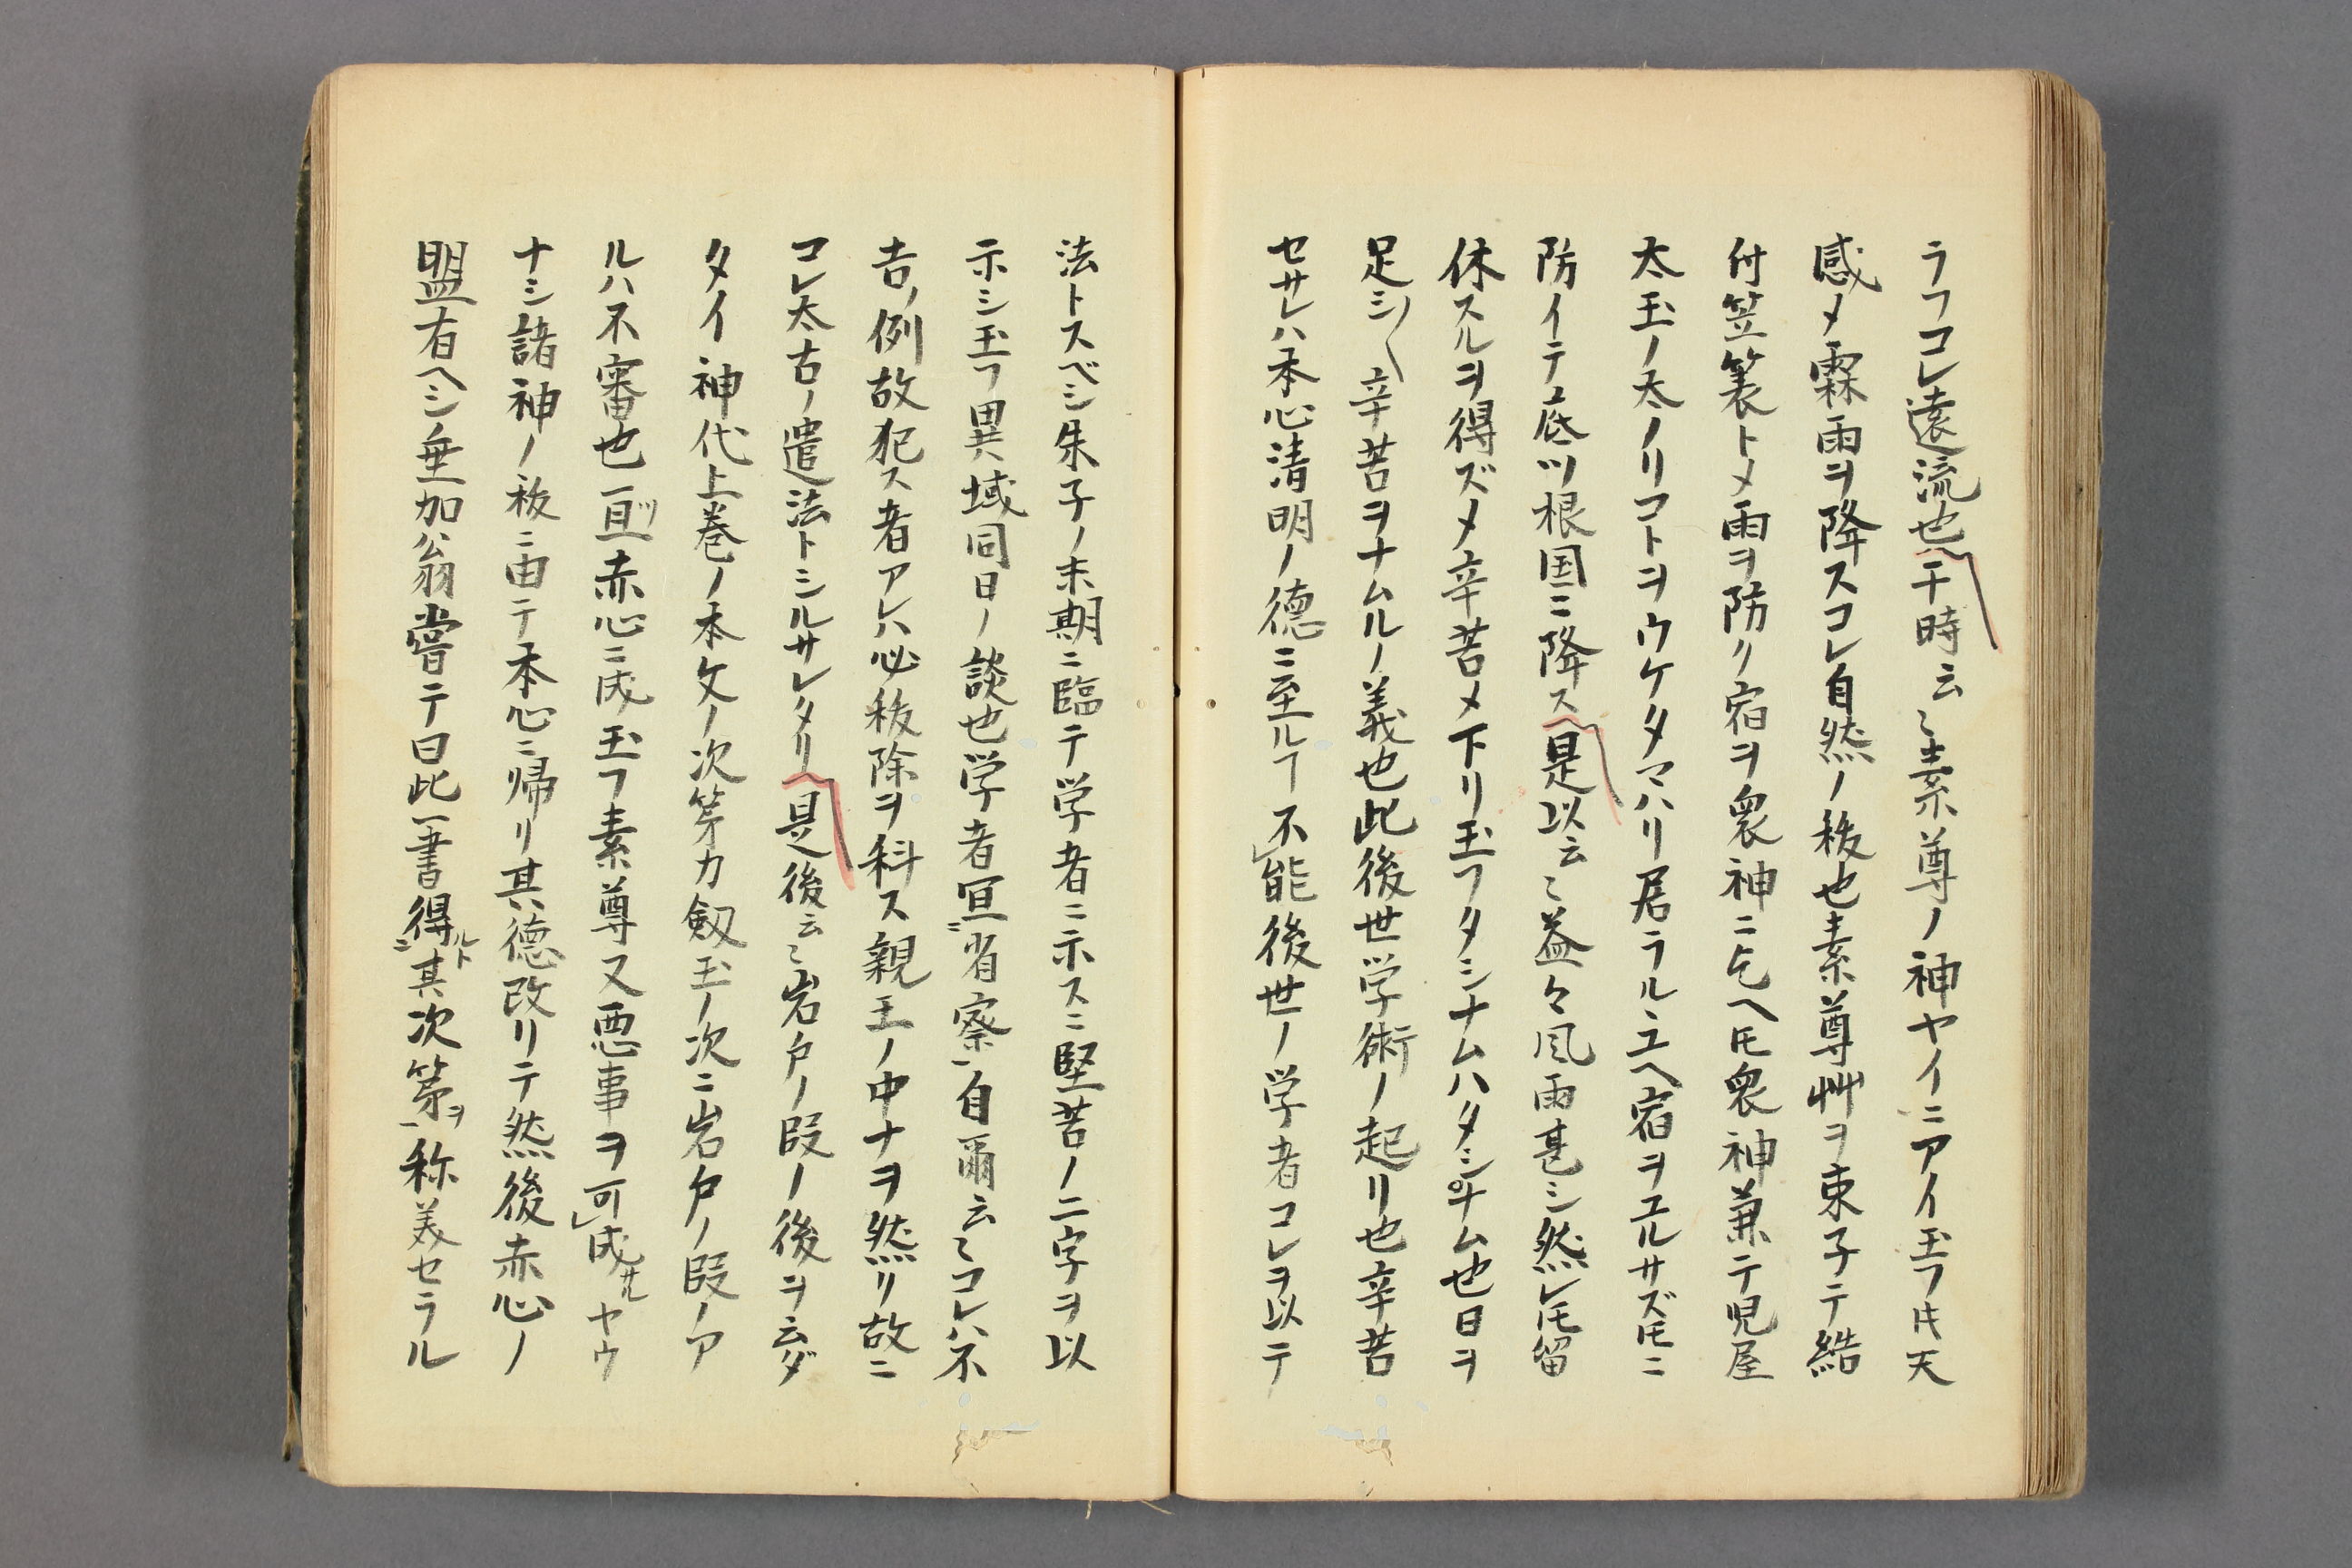 ラフコレ遠流也〽于時云〻素尊ノ神ヤイニアイ玉フ𪜈天
感〆霖雨ヲ降スコレ自然ノ秡也素尊艸ヲ束子テ結
付笠簑ト〆雨ヲ防リ宿ヲ衆神ニ乞ヘ𪜈衆神兼テ児屋
太玉ノ太ノリコトヲウケタマハリ居ラルユヘ宿ヲエルサズ𪜈ニ
防イテ底ツ根国ニ降ス〽是以云〻益々風雨甚シ然レ𪜈留
休スルヲ得ズ〆辛苦〆下リ玉フタシナムハタシナム也日ヲ
足シ〳〵辛苦ヲナムルノ義也此後世学術ノ起リ也辛苦
セサレハ本心清明ノ徳ニ至ルヿ不能後世ノ学者コレヲ以テ
法トスベシ朱子ノ末期ニ臨テ学者ニ示スニ堅苦ノ二字ヲ以
示シ玉フ異域同日ノ談也学者宜ニ省察自爾云〻コレハ不
吉ノ例故犯ス者アレハ必秡除ヲ科ス親王ノ中ナヲ然リ故ニ
コレ太古ノ遣法トシルサレタリ〽是後云〻岩戸ノ段ノ後ヲ云ダ
タイ神代上巻ノ本文ノ次第カ劔玉ノ次ニ岩戸ノ段ノア
ルハ不審也一旦ツ赤心ニ成玉フ素尊又悪事ヲ可成サルヤウ
ナシ諸神ノ秡ニ由テ本心ニ帰リ其徳改リテ然後赤心ノ
盟有ヘシ垂加翁嘗テ曰此一書得ルトニ其次第ヲ称美セラル